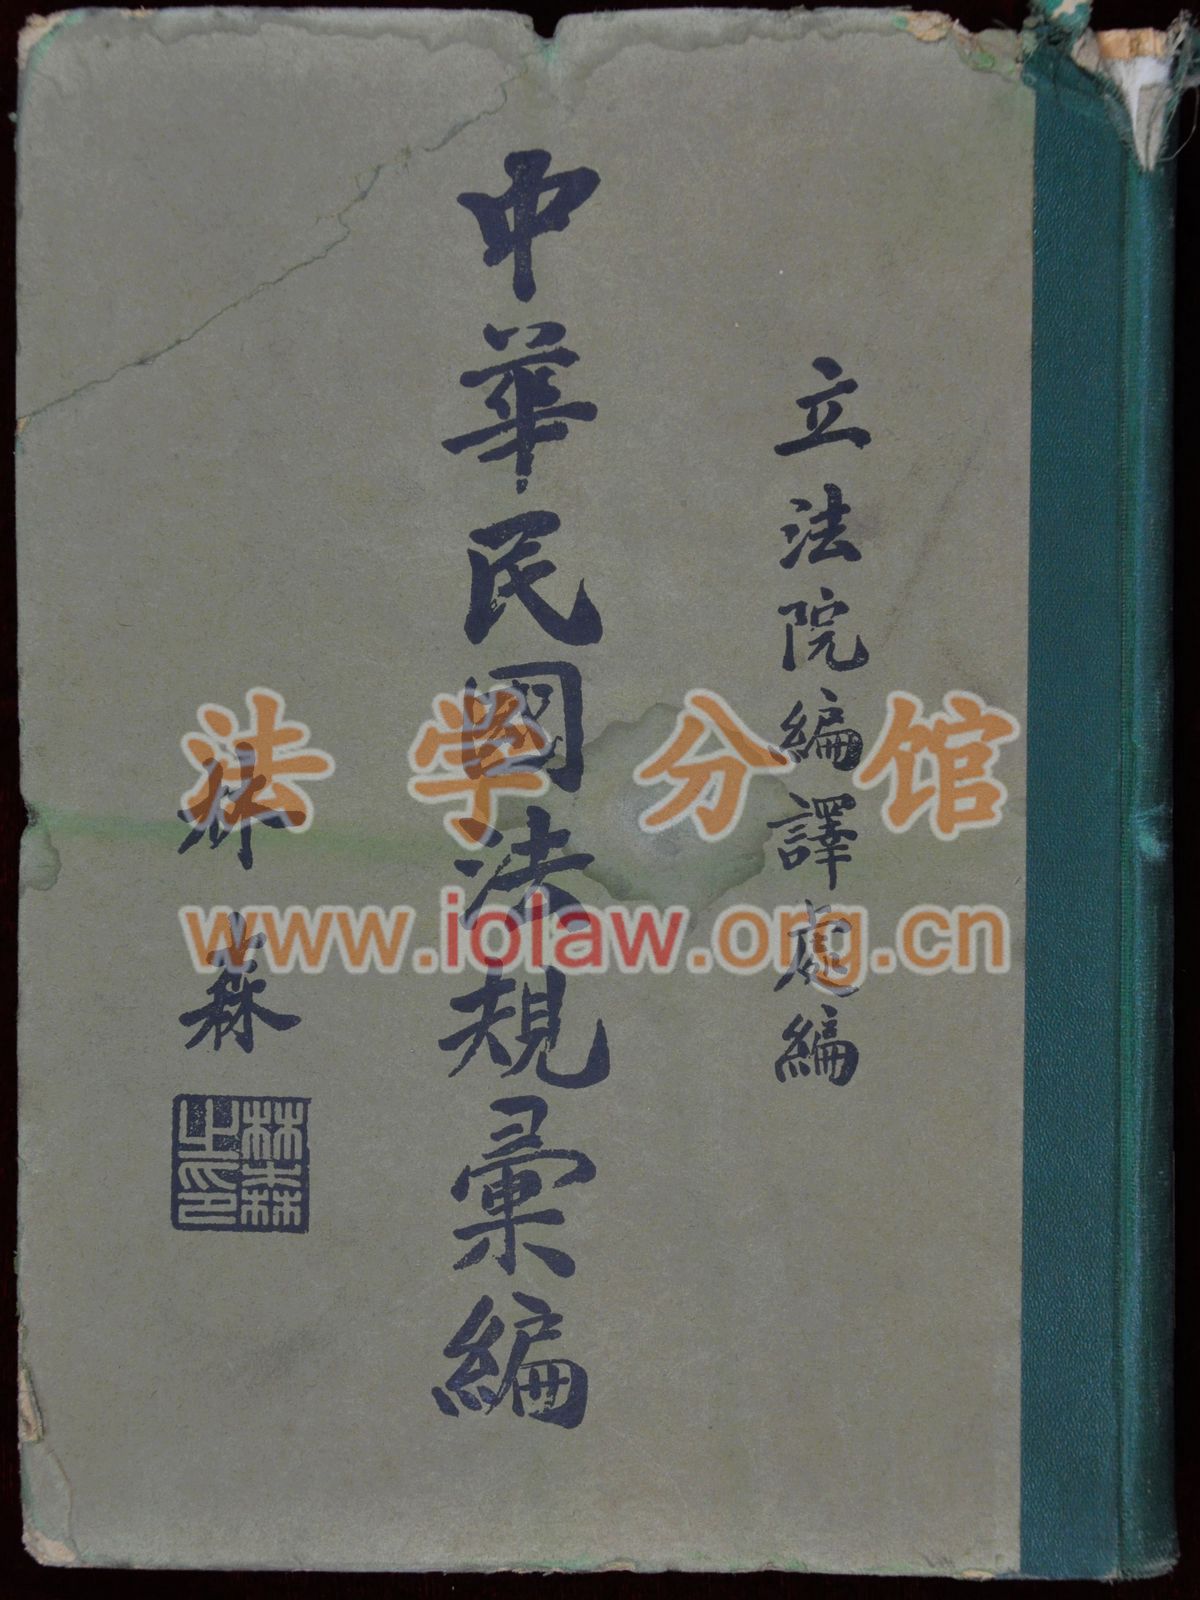 立法院編譯處編
中華民國法規彙編
林森
林森之印
法学分馆
www.iolaw.org.cn